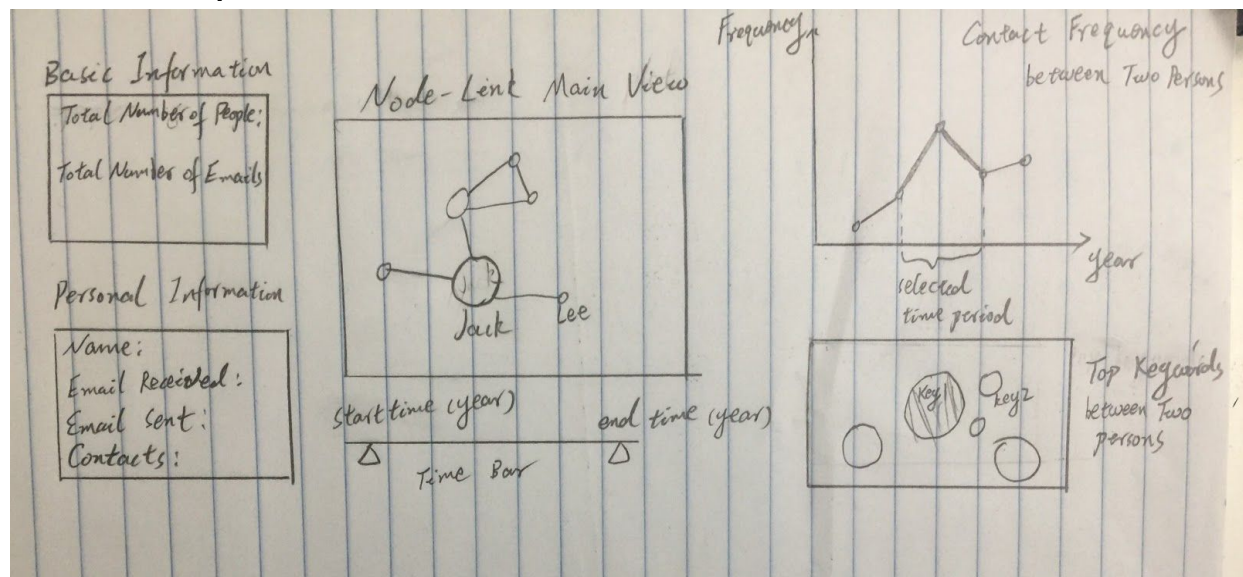 Basic Information
Total Number of People:
Total Number of Emails
Personal Information
Name:
Email Received:
Email Sent:
Contacts:
Node-Link Main View
Jack
Lee
start time (year)
end time (year)
Time Bar
Frequency
Contact Frequency
between Two Persons
year
selected
time period
key
key2
Top Keywords
between Two
persons